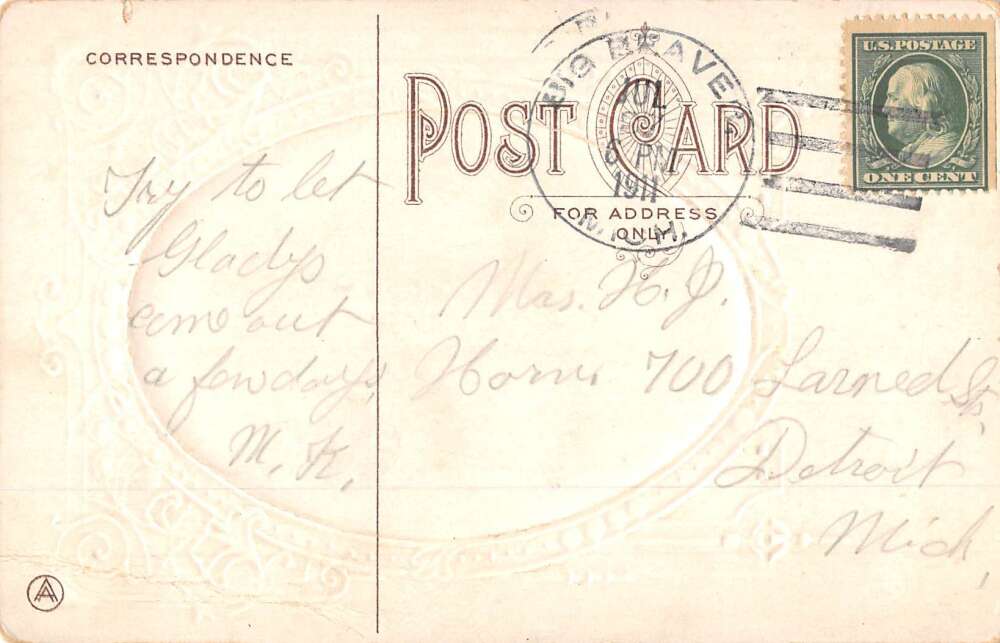 CORRESPONDENCE
POST CARD
FOR ADDRESS
ONLY.
BIG BEAVER
JUL
6 PM
1911
MICH.
U.S. POSTAGE
ONE CENT
Try to let
Gladys
come out
a few days,
M. K.
Mrs. H. J.
Horn, 700 Larned St,
Detroit
Mich,
A